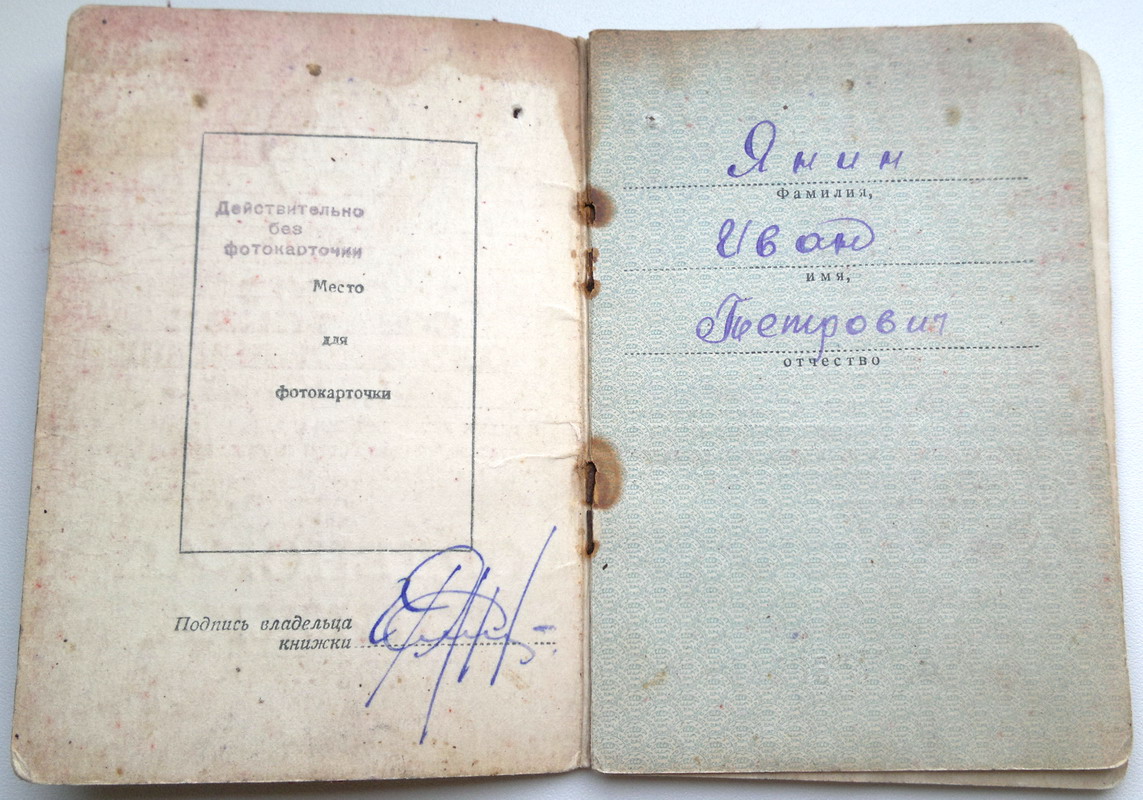 Действительно
без
фотокарточки
Место
для
фотокарточки
Подпись владельца
книжки
Янин
Фамилия,
Иван
имя,
Петрович
отчество